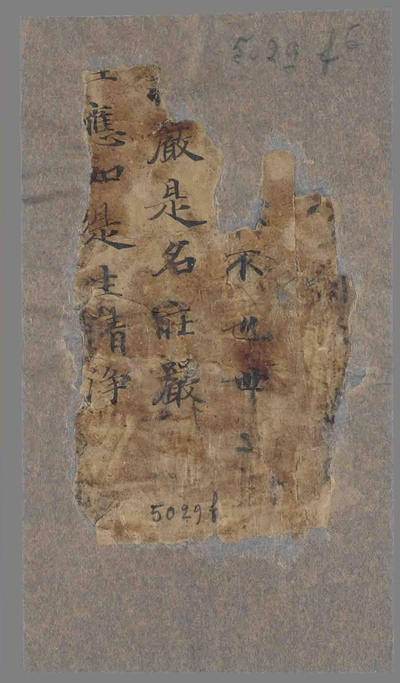 5029 f
不也世
嚴是名莊嚴
應如是生清净
5029f